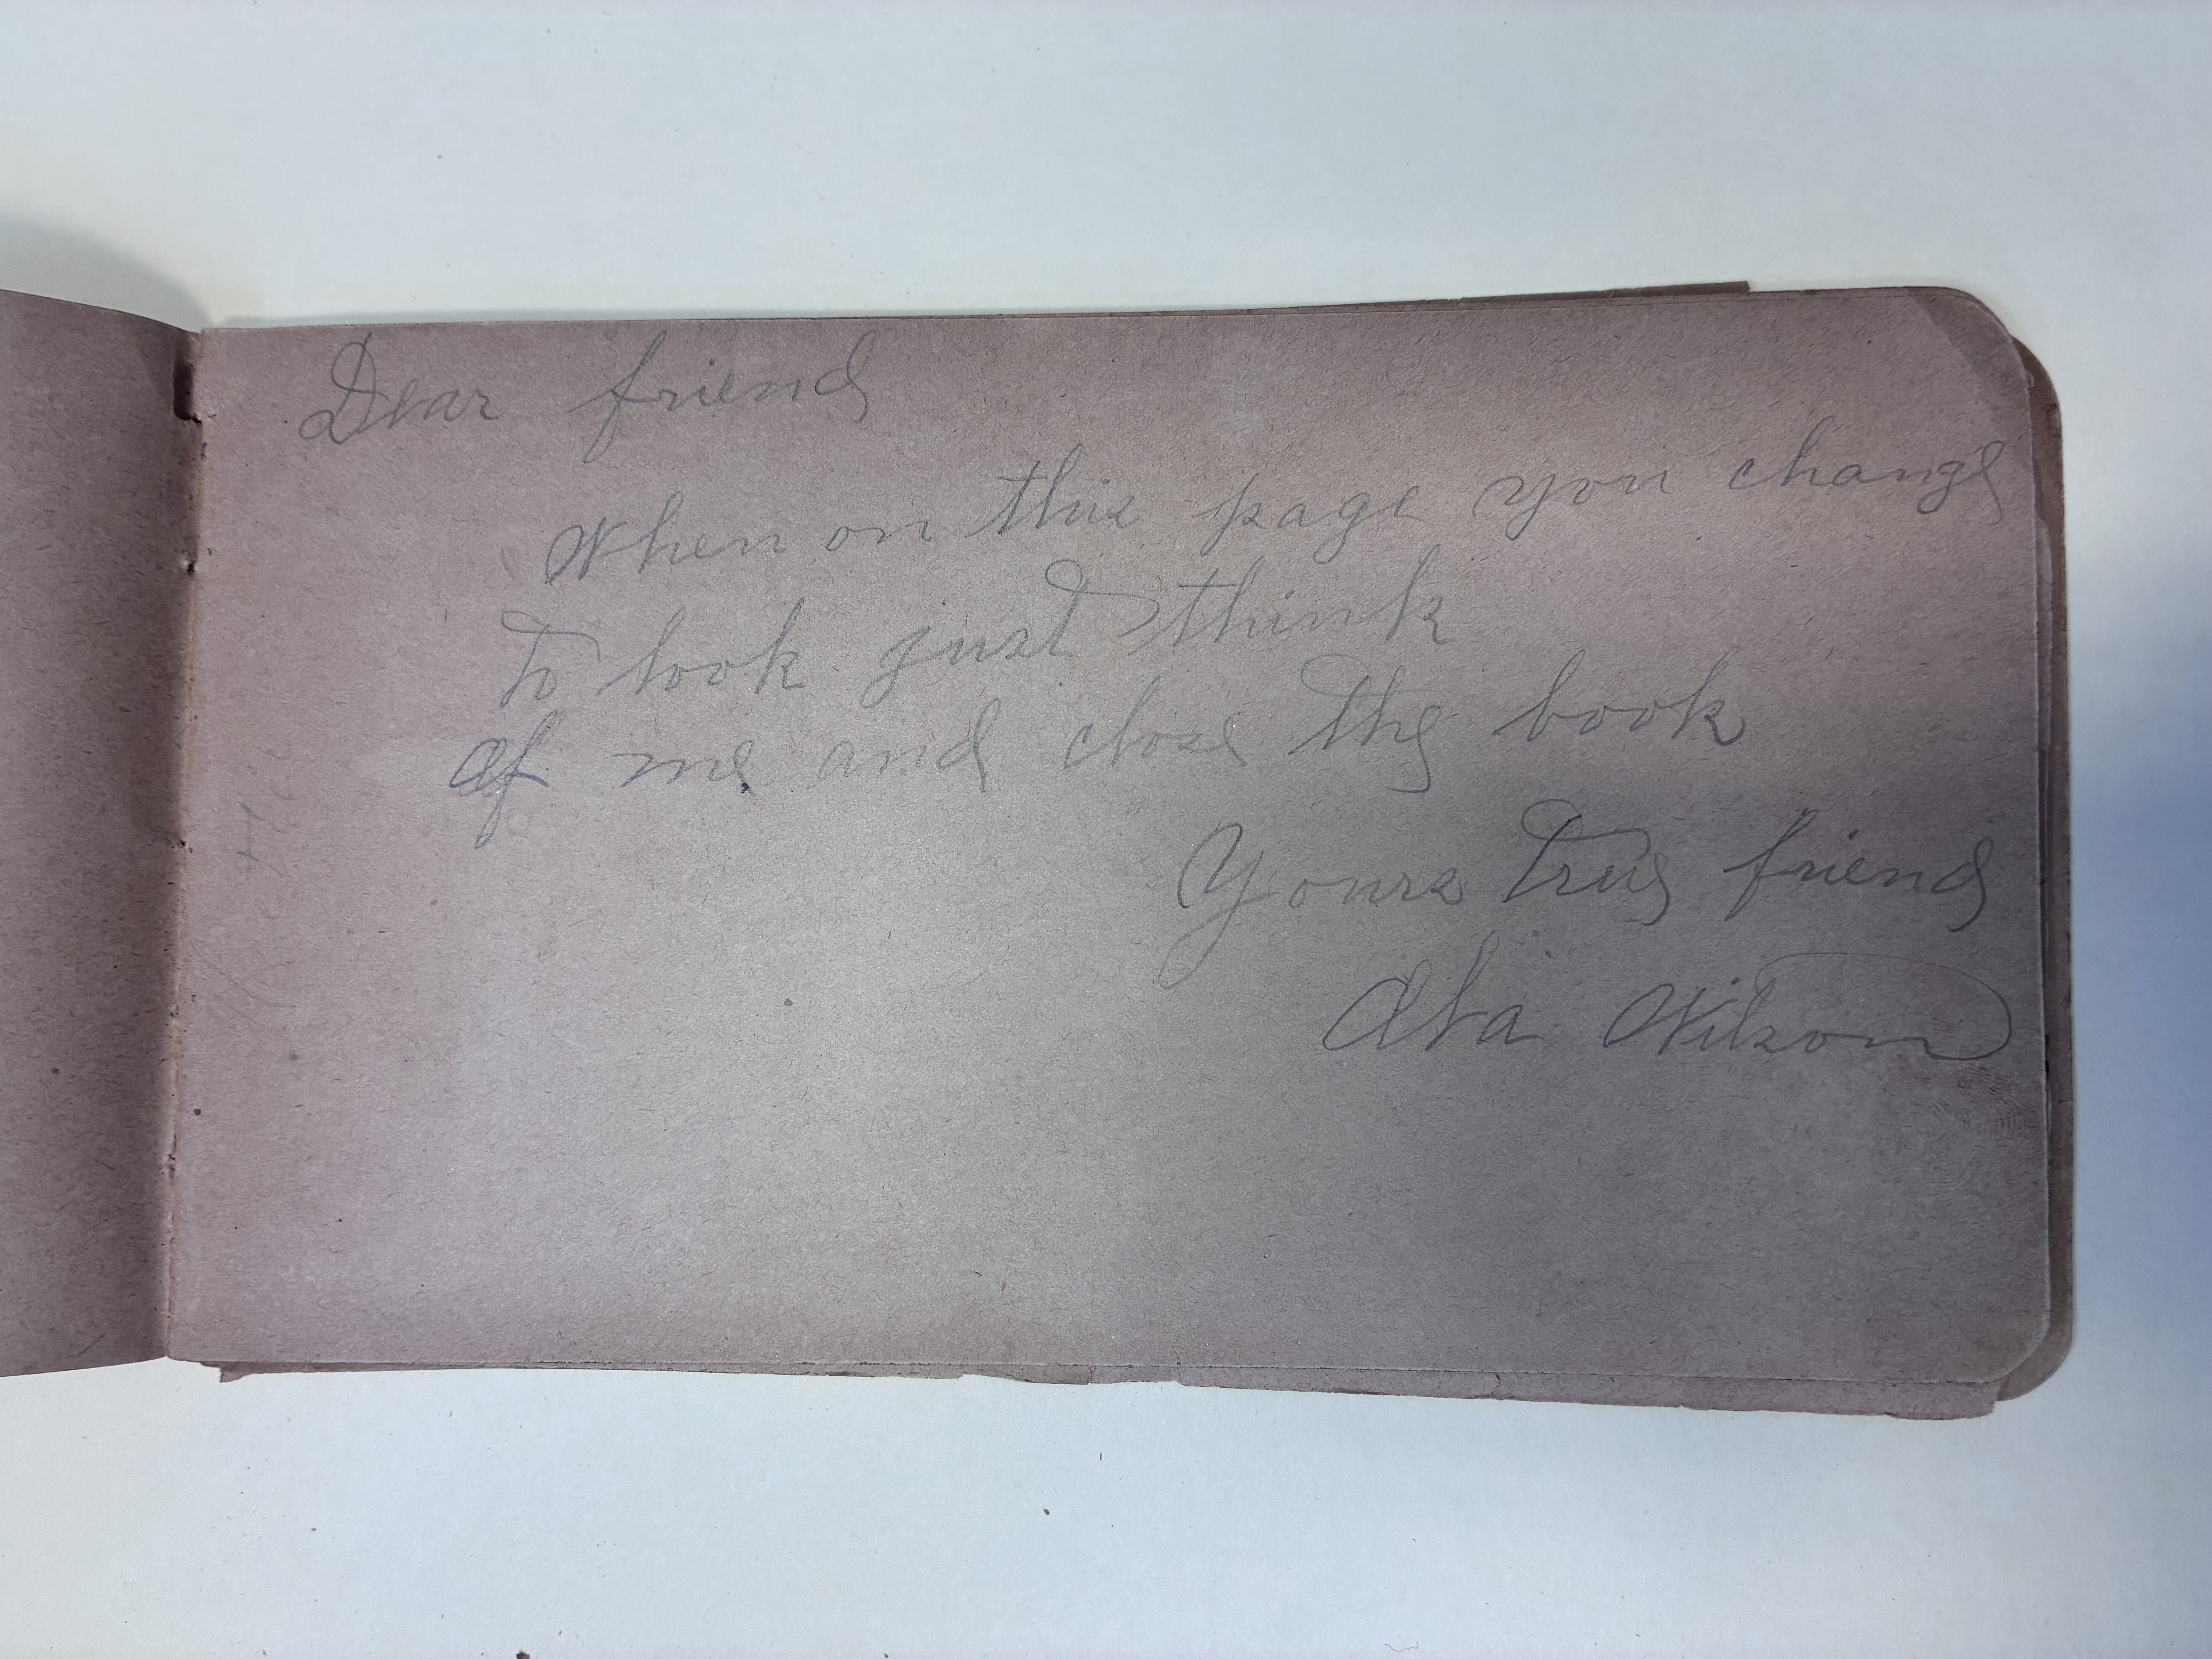 Dear friend
When on this page you change
To look just think
Of me and close the book
Yours true friend
Wilson